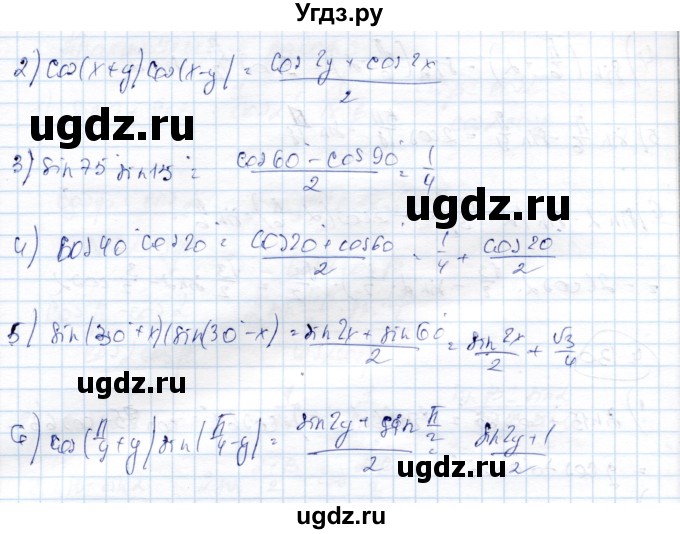 Угдз.ру
2) cos(x+y)cos(x-y) = (cos2y + cos2x)/2
ugdz.ru ugdz.ru
3) sin75°sin15° = (cos60° - cos90°)/2 = 1/4
4) cos40°cos20° = (cos20° + cos60°)/2 = 1/4 + cos20°/2
ugdz.ru
5) sin(30°+x)(sin(30°-x) = (sin2x + sin60°)/2 = sin2x/2 + √3/4
ugdz.ru ugdz.ru
6) cos(π/4+y)sin(π/4-y) = (sin2y + sin π/2)/2 = (sin2y+1)/2
ugdz.ru
ugdz.ru